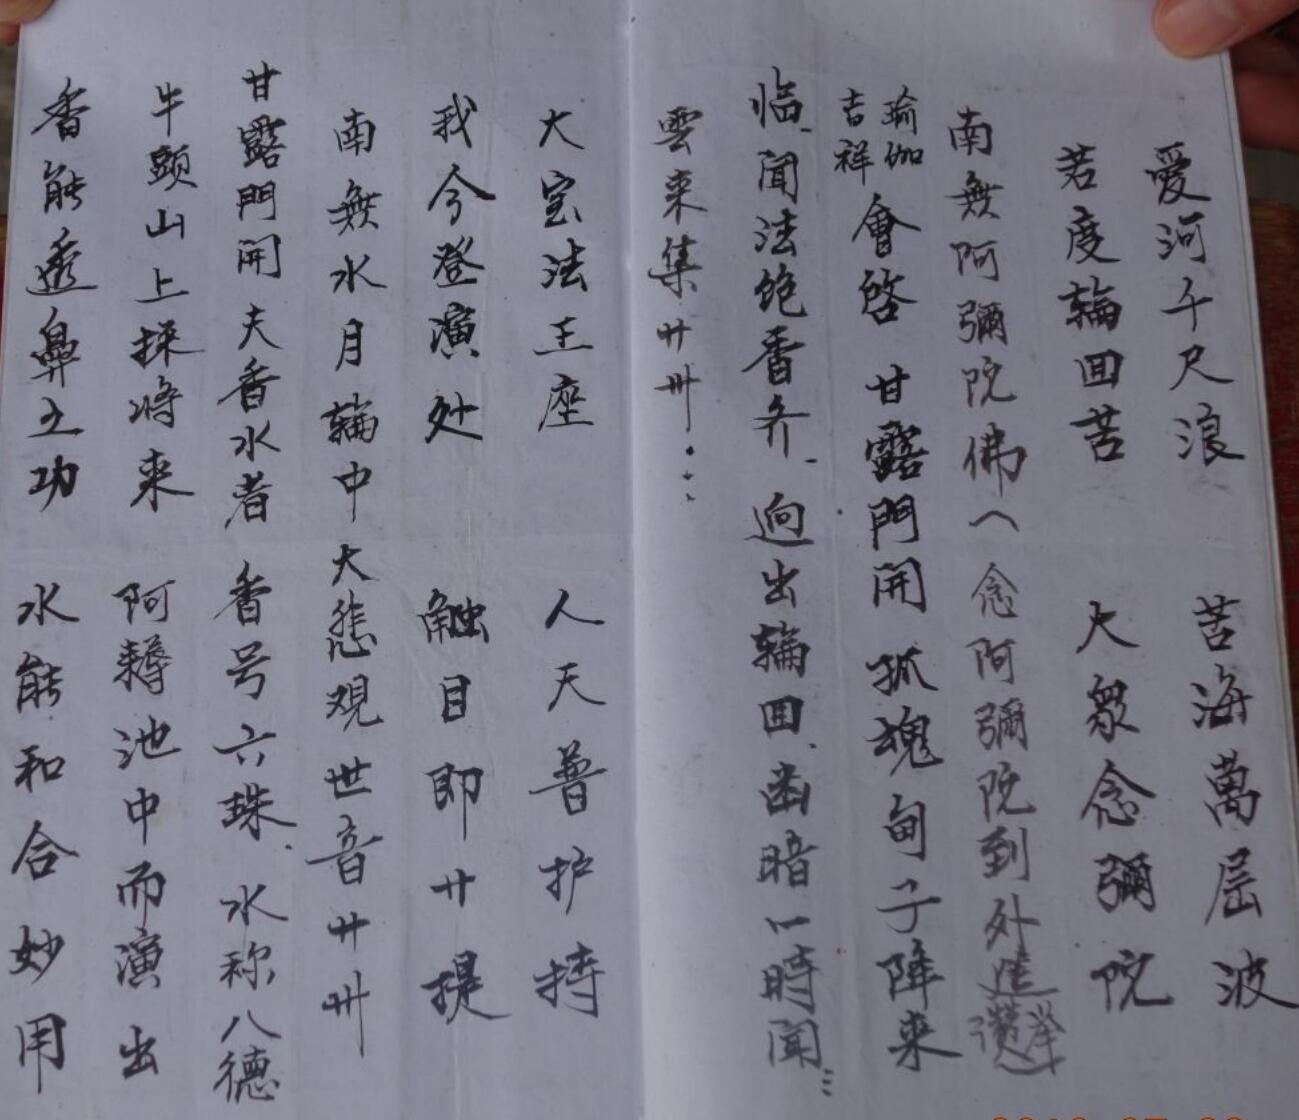 愛河千尺浪 苦海萬层波
若度輪回苦 大眾念彌陀
南無阿彌陀佛 念阿彌陀到外 讚举
瑜伽
吉祥
會啓 甘露門開 孤魂旬子降来
临聞法飽香齐 逈出輪回 幽暗一時聞
雲来集卄卅
大宝法王座 人天普护持
我今登演处 触目即卄提
南無水月輪中大悲观世音卄卅
甘露門開夫香水者 香号六珠 水称八德
牛頭山上採将来 阿耨池中而演出
香能透鼻之功 水能和合妙用